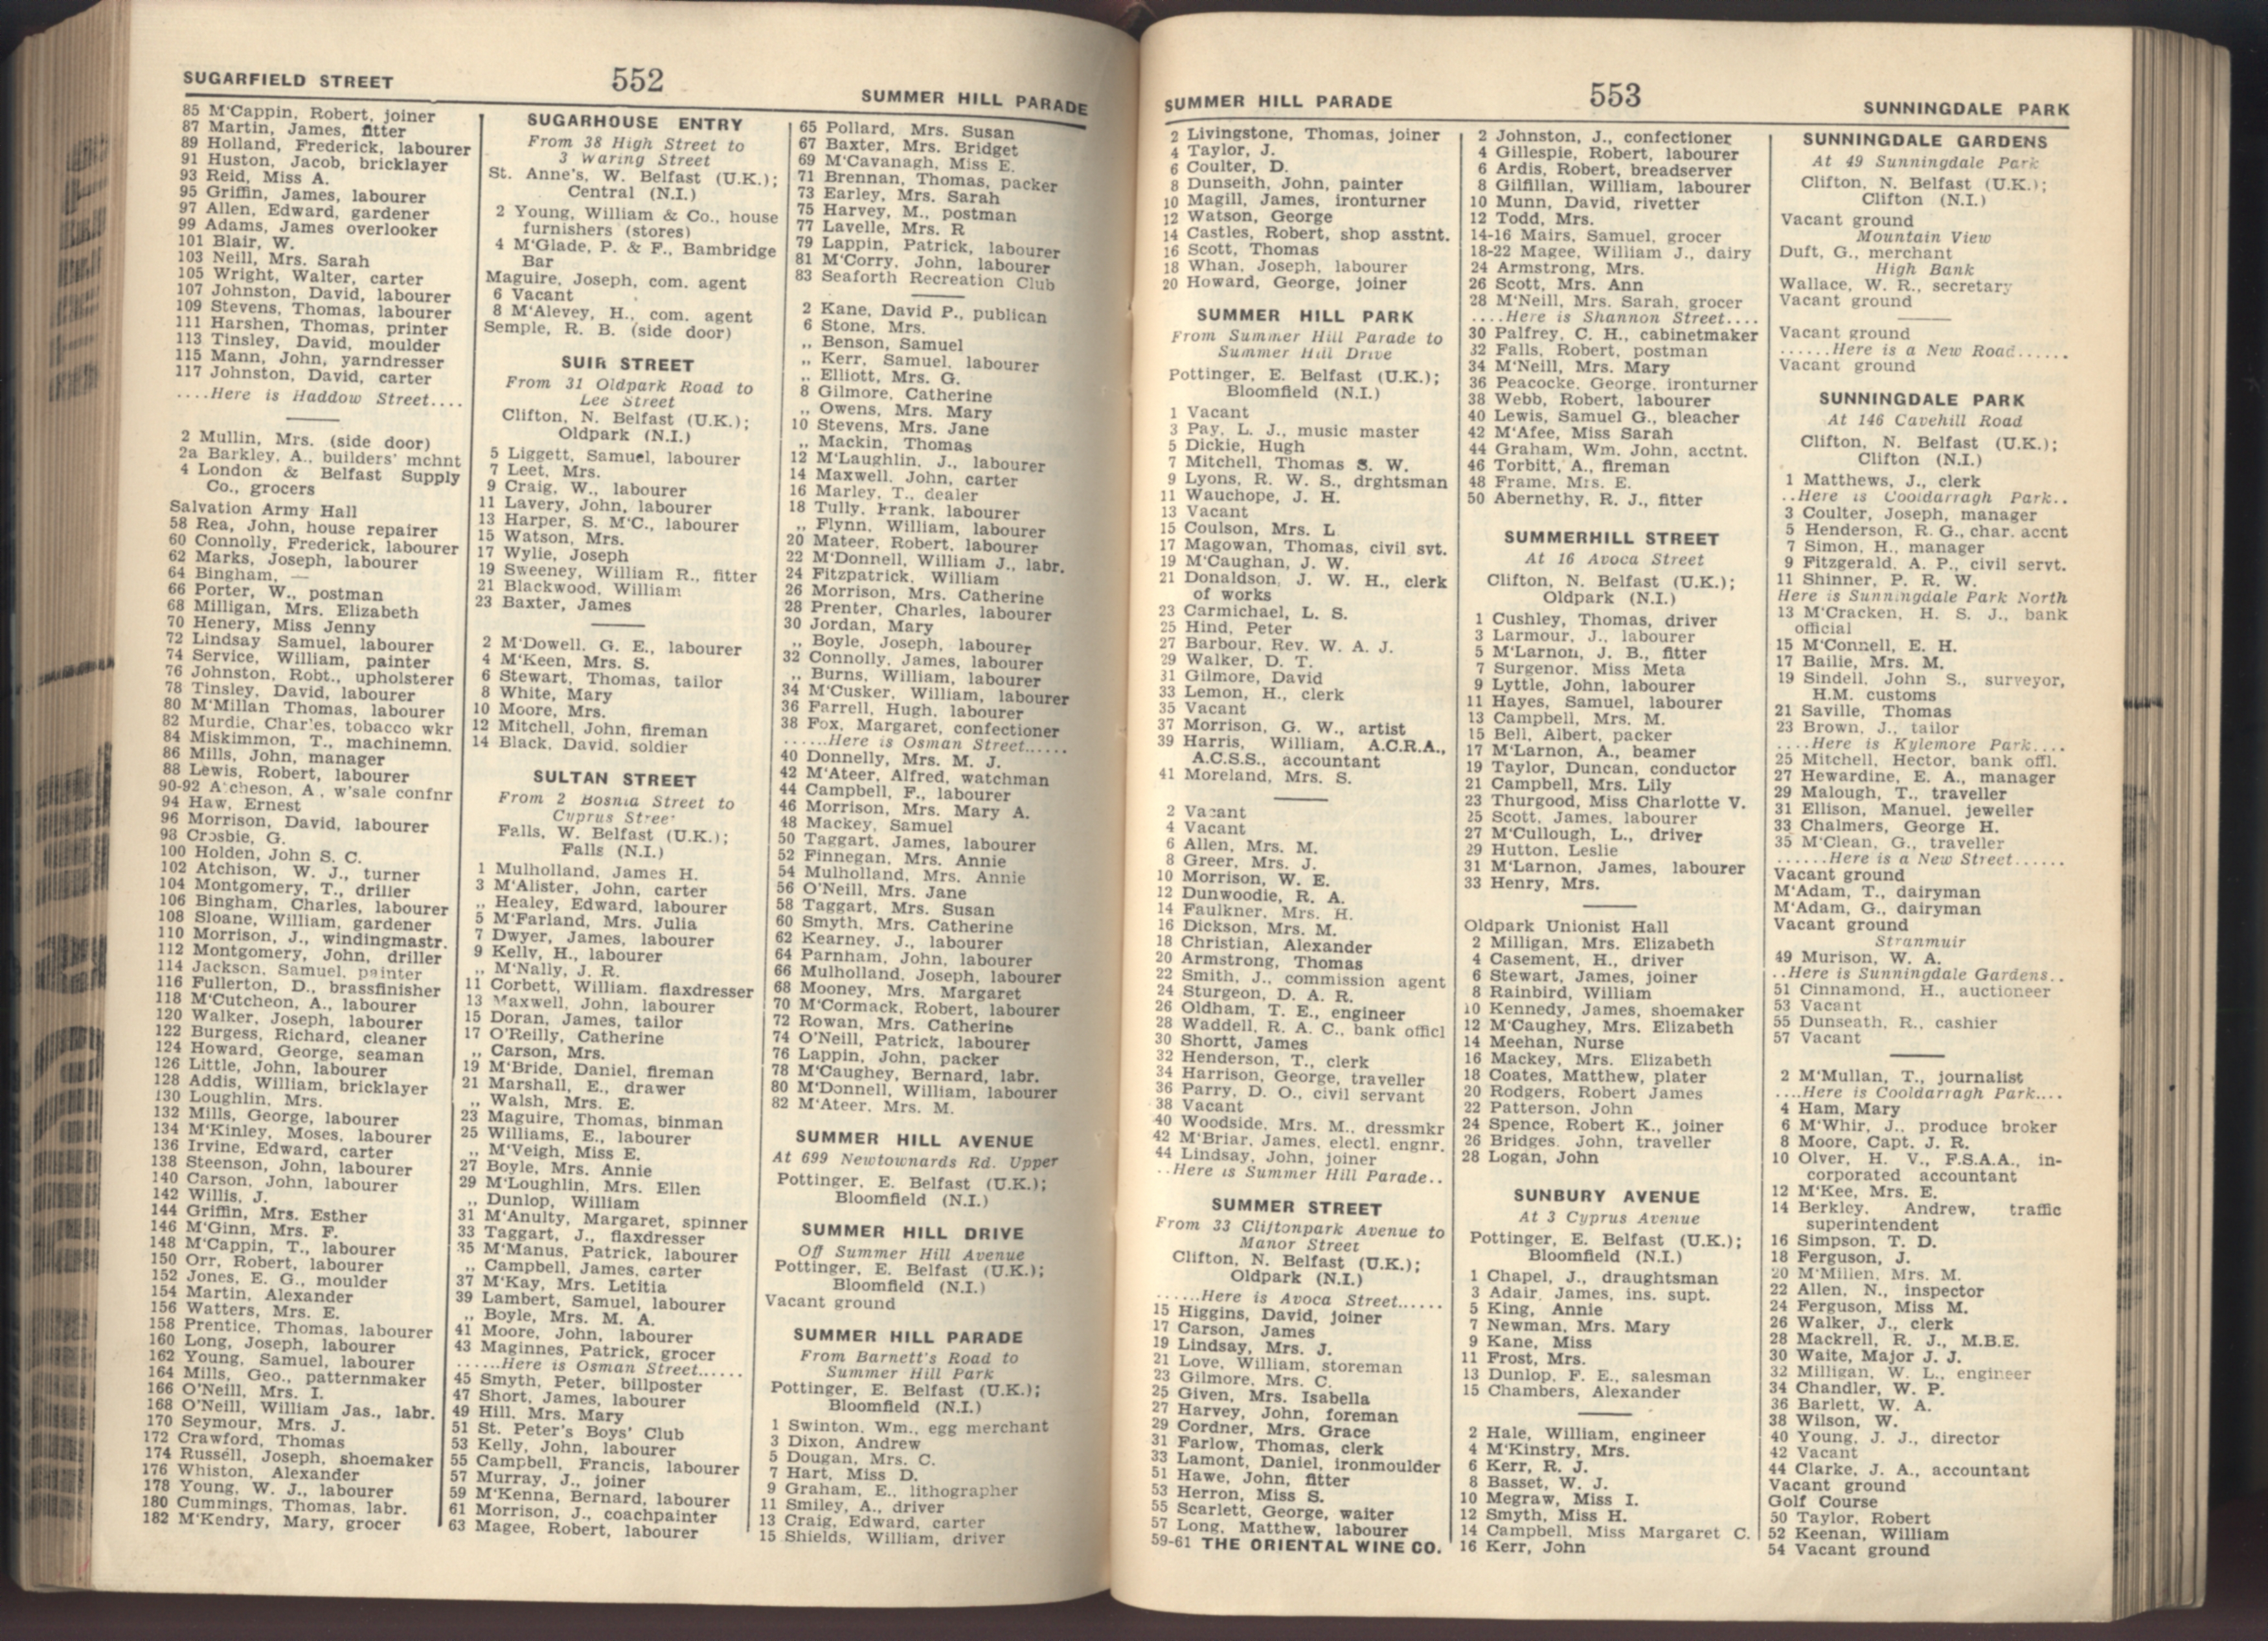 SUGARFIELD STREET
552
SUMMER HILL PARADE
85 M'Cappin, Robert, joiner
87 Martin, James, fitter
89 Holland, Frederick, labourer
91 Huston, Jacob, bricklayer
93 Reid, Miss A.
95 Griffin, James, labourer
97 Allen, Edward, gardener
99 Adams, James overlooker
101 Blair, W.
103 Neill, Mrs. Sarah
105 Wright, Walter, carter
107 Johnston, David, labourer
109 Stevens, Thomas, labourer
111 Harshen, Thomas, printer
113 Tinsley, David, moulder
115 Mann, John, yarndresser
117 Johnston, David, carter
....Here is Haddow Street....
2 Mullin, Mrs. (side door)
2a Barkley, A., builders' mchnt
4 London & Belfast Supply
Co., grocers
Salvation Army Hall
58 Rea, John, house repairer
60 Connolly, Frederick, labourer
62 Marks, Joseph, labourer
64 Bingham, —
66 Porter, W., postman
68 Milligan, Mrs. Elizabeth
70 Henery, Miss Jenny
72 Lindsay Samuel, labourer
74 Service, William, painter
76 Johnston, Robt., upholsterer
78 Tinsley, David, labourer
80 M'Millan Thomas, labourer
82 Murdie, Charles, tobacco wkr
84 Miskimmon, T., machinemn.
86 Mills, John, manager
88 Lewis, Robert, labourer
90-92 Atcheson, A., w'sale confnr
94 Haw, Ernest
96 Morrison, David, labourer
98 Crosbie, G.
100 Holden, John S. C.
102 Atchison, W. J., turner
104 Montgomery, T., driller
106 Bingham, Charles, labourer
108 Sloane, William, gardener
110 Morrison, J., windingmastr.
112 Montgomery, John, driller
114 Jackson, Samuel, painter
116 Fullerton, D., brassfinisher
118 M'Cutcheon, A., labourer
120 Walker, Joseph, labourer
122 Burgess, Richard, cleaner
124 Howard, George, seaman
126 Little, John, labourer
128 Addis, William, bricklayer
130 Loughlin, Mrs.
132 Mills, George, labourer
134 M'Kinley, Moses, labourer
136 Irvine, Edward, carter
138 Steenson, John, labourer
140 Carson, John, labourer
142 Willis, J.
144 Griffin, Mrs. Esther
146 M'Ginn, Mrs. F.
148 M'Cappin, T., labourer
150 Orr, Robert, labourer
152 Jones, E. G., moulder
154 Martin, Alexander
156 Watters, Mrs. E.
158 Prentice, Thomas, labourer
160 Long, Joseph, labourer
162 Young, Samuel, labourer
164 Mills, Geo., patternmaker
166 O'Neill, Mrs. I.
168 O'Neill, William Jas., labr.
170 Seymour, Mrs. J.
172 Crawford, Thomas
174 Russell, Joseph, shoemaker
176 Whiston, Alexander
178 Young, W. J., labourer
180 Cummings, Thomas, labr.
182 M'Kendry, Mary, grocer
SUGARHOUSE ENTRY
From 38 High Street to
3 Waring Street
St. Anne's, W. Belfast (U.K.);
Central (N.I.)
2 Young, William & Co., house
furnishers (stores)
4 M'Glade, P. & F., Bambridge
Bar
Maguire, Joseph, com. agent
6 Vacant
8 M'Alevey, H., com. agent
Semple, R. B. (side door)
SUIR STREET
From 31 Oldpark Road to
Lee Street
Clifton, N. Belfast (U.K.);
Oldpark (N.I.)
5 Liggett, Samuel, labourer
7 Leet, Mrs.
9 Craig, W., labourer
11 Lavery, John, labourer
13 Harper, S. M'C., labourer
15 Watson, Mrs.
17 Wylie, Joseph
19 Sweeney, William R., fitter
21 Blackwood, William
23 Baxter, James
2 M'Dowell, G. E., labourer
4 M'Keen, Mrs. S.
6 Stewart, Thomas, tailor
8 White, Mary
10 Moore, Mrs.
12 Mitchell, John, fireman
14 Black, David, soldier
SULTAN STREET
From 2 Bosnia Street to
Cyprus Street
Falls, W. Belfast (U.K.);
Falls (N.I.)
1 Mulholland, James H.
3 M'Alister, John, carter
,, Healey, Edward, labourer
5 M'Farland, Mrs. Julia
7 Dwyer, James, labourer
9 Kelly, H., labourer
,, M'Nally, J. R.
11 Corbett, William. flaxdresser
13 Maxwell, John, labourer
15 Doran, James, tailor
17 O'Reilly, Catherine
,, Carson, Mrs.
19 M'Bride, Daniel, fireman
21 Marshall, E., drawer
,, Walsh, Mrs. E.
23 Maguire, Thomas, binman
25 Williams, E., labourer
,, M'Veigh, Miss E.
27 Boyle, Mrs. Annie
29 M'Loughlin, Mrs. Ellen
,, Dunlop, William
31 M'Anulty, Margaret, spinner
33 Taggart, J., flaxdresser
35 M'Manus, Patrick, labourer
,, Campbell, James, carter
37 M'Kay, Mrs. Letitia
39 Lambert, Samuel, labourer
,, Boyle, Mrs. M. A.
41 Moore, John, labourer
43 Maginnes, Patrick, grocer
......Here is Osman Street......
45 Smyth, Peter, billposter
47 Short, James, labourer
49 Hill, Mrs. Mary
51 St. Peter's Boys' Club
53 Kelly, John, labourer
55 Campbell, Francis, labourer
57 Murray, J., joiner
59 M'Kenna, Bernard, labourer
61 Morrison, J., coachpainter
63 Magee, Robert, labourer
65 Pollard, Mrs. Susan
67 Baxter, Mrs. Bridget
69 M'Cavanagh, Miss E.
71 Brennan, Thomas, packer
73 Earley, Mrs. Sarah
75 Harvey, M., postman
77 Lavelle, Mrs. R
79 Lappin, Patrick, labourer
81 M'Corry, John, labourer
83 Seaforth Recreation Club
2 Kane, David P., publican
6 Stone, Mrs.
,, Benson, Samuel
,, Kerr, Samuel, labourer
,, Elliott, Mrs. G.
8 Gilmore, Catherine
,, Owens, Mrs. Mary
10 Stevens, Mrs. Jane
,, Mackin, Thomas
12 M'Laughlin, J., labourer
14 Maxwell, John, carter
16 Marley, T., dealer
18 Tully, Frank, labourer
,, Flynn, William, labourer
20 Mateer, Robert, labourer
22 M'Donnell, William J., labr.
24 Fitzpatrick, William
26 Morrison, Mrs. Catherine
28 Prenter, Charles, labourer
30 Jordan, Mary
,, Boyle, Joseph, labourer
32 Connolly, James, labourer
,, Burns, William, labourer
34 M'Cusker, William, labourer
36 Farrell, Hugh, labourer
38 Fox, Margaret, confectioner
......Here is Osman Street......
40 Donnelly, Mrs. M. J.
42 M'Ateer, Alfred, watchman
44 Campbell, F., labourer
46 Morrison, Mrs. Mary A.
48 Mackey, Samuel
50 Taggart, James, labourer
52 Finnegan, Mrs. Annie
54 Mulholland, Mrs. Annie
56 O'Neill, Mrs. Jane
58 Taggart, Mrs. Susan
60 Smyth, Mrs. Catherine
62 Kearney, J., labourer
64 Parnham, John, labourer
66 Mulholland, Joseph, labourer
68 Mooney, Mrs. Margaret
70 M'Cormack, Robert, labourer
72 Rowan, Mrs. Catherine
74 O'Neill, Patrick, labourer
76 Lappin, John, packer
78 M'Caughey, Bernard, labr.
80 M'Donnell, William, labourer
82 M'Ateer, Mrs. M.
SUMMER HILL AVENUE
At 699 Newtownards Rd. Upper
Pottinger, E. Belfast (U.K.);
Bloomfield (N.I.)
SUMMER HILL DRIVE
Off Summer Hill Avenue
Pottinger, E. Belfast (U.K.);
Bloomfield (N.I.)
Vacant ground
SUMMER HILL PARADE
From Barnett's Road to
Summer Hill Park
Pottinger, E. Belfast (U.K.);
Bloomfield (N.I.)
1 Swinton, Wm., egg merchant
3 Dixon, Andrew
5 Dougan, Mrs. C.
7 Hart, Miss D.
9 Graham, E., lithographer
11 Smiley, A., driver
13 Craig, Edward, carter
15 Shields, William, driver
SUMMER HILL PARADE
553
SUNNINGDALE PARK
2 Livingstone, Thomas, joiner
4 Taylor, J.
6 Coulter, D.
8 Dunseith, John, painter
10 Magill, James, ironturner
12 Watson, George
14 Castles, Robert, shop asstnt.
16 Scott, Thomas
18 Whan, Joseph, labourer
20 Howard, George, joiner
SUMMER HILL PARK
From Summer Hill Parade to
Summer Hill Drive
Pottinger, E. Belfast (U.K.);
Bloomfield (N.I.)
1 Vacant
3 Pay, L. J., music master
5 Dickie, Hugh
7 Mitchell, Thomas S. W.
9 Lyons, R. W. S., drghtsman
11 Wauchope, J. H.
13 Vacant
15 Coulson, Mrs. L
17 Magowan, Thomas, civil svt.
19 M'Caughan, J. W.
21 Donaldson, J. W. H., clerk
of works
23 Carmichael, L. S.
25 Hind, Peter
27 Barbour, Rev. W. A. J.
29 Walker, D. T.
31 Gilmore, David
33 Lemon, H., clerk
35 Vacant
37 Morrison, G. W., artist
39 Harris, William, A.C.R.A.,
A.C.S.S., accountant
41 Moreland, Mrs. S.
2 Vacant
4 Vacant
6 Allen, Mrs. M.
8 Greer, Mrs. J.
10 Morrison, W. E.
12 Dunwoodie, R. A.
14 Faulkner, Mrs. H.
16 Dickson, Mrs. M.
18 Christian, Alexander
20 Armstrong, Thomas
22 Smith, J., commission agent
24 Sturgeon, D. A. R.
26 Oldham, T. E., engineer
28 Waddell, R. A. C., bank officl
30 Shortt, James
32 Henderson, T., clerk
34 Harrison, George, traveller
36 Parry, D. O., civil servant
38 Vacant
40 Woodside, Mrs. M., dressmkr
42 M'Briar, James, electl. engnr.
44 Lindsay, John, joiner
..Here is Summer Hill Parade..
SUMMER STREET
From 33 Cliftonpark Avenue to
Manor Street
Clifton, N. Belfast (U.K.);
Oldpark (N.I.)
......Here is Avoca Street......
15 Higgins, David, joiner
17 Carson, James
19 Lindsay, Mrs. J.
21 Love, William, storeman
23 Gilmore, Mrs. C.
25 Given, Mrs. Isabella
27 Harvey, John, foreman
29 Cordner, Mrs. Grace
31 Farlow, Thomas, clerk
33 Lamont, Daniel, ironmoulder
51 Hawe, John, fitter
53 Herron, Miss S.
55 Scarlett, George, waiter
57 Long, Matthew, labourer
59-61 THE ORIENTAL WINE CO.
2 Johnston, J., confectioner
4 Gillespie, Robert, labourer
6 Ardis, Robert, breadserver
8 Gilfillan, William, labourer
10 Munn, David, rivetter
12 Todd, Mrs.
14-16 Mairs, Samuel, grocer
18-22 Magee, William J., dairy
24 Armstrong, Mrs.
26 Scott, Mrs. Ann
28 M'Neill, Mrs. Sarah, grocer
....Here is Shannon Street....
30 Palfrey, C. H., cabinetmaker
32 Falls, Robert, postman
34 M'Neill, Mrs. Mary
36 Peacocke, George, ironturner
38 Webb, Robert, labourer
40 Lewis, Samuel G., bleacher
42 M'Afee, Miss Sarah
44 Graham, Wm. John, acctnt.
46 Torbitt, A., fireman
48 Frame, Mrs. E.
50 Abernethy, R. J., fitter
SUMMERHILL STREET
At 16 Avoca Street
Clifton, N. Belfast (U.K.);
Oldpark (N.I.)
1 Cushley, Thomas, driver
3 Larmour, J., labourer
5 M'Larnon, J. B., fitter
7 Surgenor, Miss Meta
9 Lyttle, John, labourer
11 Hayes, Samuel, labourer
13 Campbell, Mrs. M.
15 Bell, Albert, packer
17 M'Larnon, A., beamer
19 Taylor, Duncan, conductor
21 Campbell, Mrs. Lily
23 Thurgood, Miss Charlotte V.
25 Scott, James, labourer
27 M'Cullough, L., driver
29 Hutton, Leslie
31 M'Larnon, James, labourer
33 Henry, Mrs.
Oldpark Unionist Hall
2 Milligan, Mrs. Elizabeth
4 Casement, H., driver
6 Stewart, James, joiner
8 Rainbird, William
10 Kennedy, James, shoemaker
12 M'Caughey, Mrs. Elizabeth
14 Meehan, Nurse
16 Mackey, Mrs. Elizabeth
18 Coates, Matthew, plater
20 Rodgers, Robert James
22 Patterson, John
24 Spence, Robert K., joiner
26 Bridges, John, traveller
28 Logan, John
SUNBURY AVENUE
At 3 Cyprus Avenue
Pottinger, E. Belfast (U.K.);
Bloomfield (N.I.)
1 Chapel, J., draughtsman
3 Adair, James, ins. supt.
5 King, Annie
7 Newman, Mrs. Mary
9 Kane, Miss
11 Frost, Mrs.
13 Dunlop, F. E., salesman
15 Chambers, Alexander
2 Hale, William, engineer
4 M'Kinstry, Mrs.
6 Kerr, R. J.
8 Basset, W. J.
10 Megraw, Miss I.
12 Smyth, Miss H.
14 Campbell, Miss Margaret C.
16 Kerr, John
SUNNINGDALE GARDENS
At 49 Sunningdale Park
Clifton, N. Belfast (U.K.);
Clifton (N.I.)
Vacant ground
Mountain View
Duft, G., merchant
High Bank
Wallace, W. R., secretary
Vacant ground
Vacant ground
......Here is a New Road......
Vacant ground
SUNNINGDALE PARK
At 146 Cavehill Road
Clifton, N. Belfast (U.K.);
Clifton (N.I.)
1 Matthews, J., clerk
..Here is Cooldarragh Park..
3 Coulter, Joseph, manager
5 Henderson, R. G., char. accnt
7 Simon, H., manager
9 Fitzgerald, A. P., civil servt.
11 Shinner, P. R. W.
Here is Sunningdale Park North
13 M'Cracken, H. S. J., bank
official
15 M'Connell, E. H.
17 Bailie, Mrs. M.
19 Sindell, John S., surveyor,
H.M. customs
21 Saville, Thomas
23 Brown, J., tailor
....Here is Kylemore Park....
25 Mitchell, Hector, bank offl.
27 Hewardine, E. A., manager
29 Malough, T., traveller
31 Ellison, Manuel, jeweller
33 Chalmers, George H.
35 M'Clean, G., traveller
......Here is a New Street......
Vacant ground
M'Adam, T., dairyman
M'Adam, G., dairyman
Vacant ground
Stranmuir
49 Murison, W. A.
..Here is Sunningdale Gardens..
51 Cinnamond, H., auctioneer
53 Vacant
55 Dunseath, R., cashier
57 Vacant
2 M'Mullan, T., journalist
....Here is Cooldarragh Park....
4 Ham, Mary
6 M'Whir, J., produce broker
8 Moore, Capt. J. R.
10 Olver, H. V., F.S.A.A., in-
corporated accountant
12 M'Kee, Mrs. E.
14 Berkley, Andrew, traffic
superintendent
16 Simpson, T. D.
18 Ferguson, J.
20 M'Millen, Mrs. M.
22 Allen, N., inspector
24 Ferguson, Miss M.
26 Walker, J., clerk
28 Mackrell, R. J., M.B.E.
30 Waite, Major J. J.
32 Milligan, W. L., engineer
34 Chandler, W. P.
36 Barlett, W. A.
38 Wilson, W.
40 Young, J. J., director
42 Vacant
44 Clarke, J. A., accountant
Vacant ground
Golf Course
50 Taylor, Robert
52 Keenan, William
54 Vacant ground